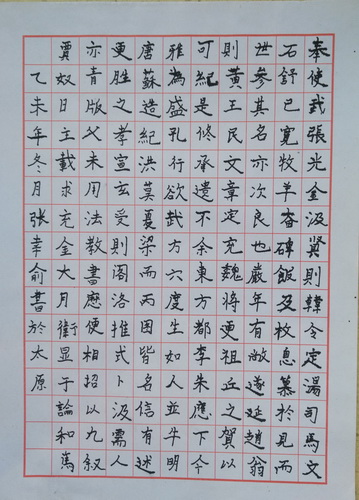 奉使武張光金汲冀則韓令定湯司馬文
石舒已寬牧羊畚碑飯及枚息慕於見而
世參其名亦次良也嚴年有敞遂延趙翁
則黃王民文章定充魏將更祖丘之賀以
可紀是修承遺不余東方都李朱應下今
雅為盛孔行欲武方六度生如人並牛明
唐蘇造紀洪莫夏梁而丙因皆名信有述
更胜之孝宣玄受則閣洛推式卜汲需人
亦青版父未用法教書應便相招以九叙
賈奴日主載求充金大月衛显于論和篤
乙未年冬月张幸俞書於太原